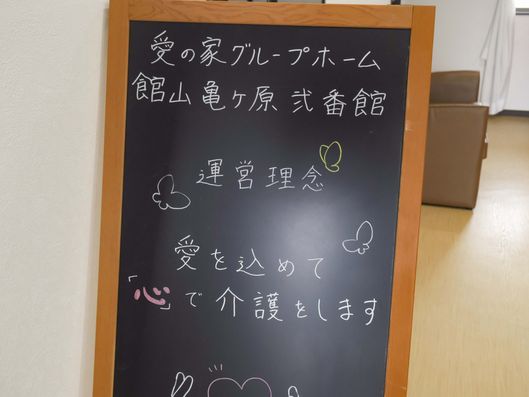 愛の家グループホーム
館山亀ケ原 弐番館
運営理念
愛を込めて
「心」で介護をします